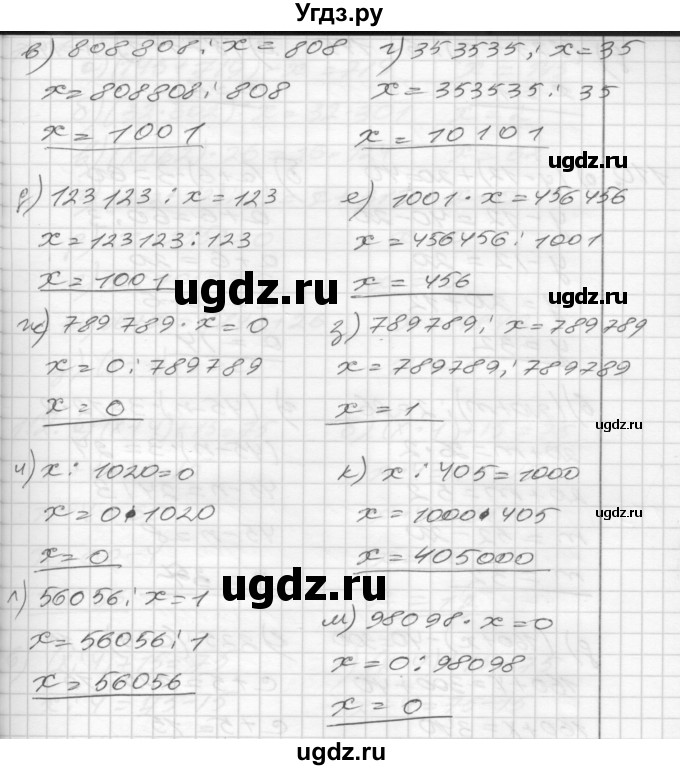 Угдз.ру
в) 808808 : x = 808
x = 808808 : 808
x = 1001
г) 353535 : x = 35
x = 353535 : 35
x = 10101
ugdz.ru
д) 123123 : x = 123
x = 123123 : 123
x = 1001
ugdz.ru
е) 1001 · x = 456456
x = 456456 : 1001
x = 456
ugdz.ru
ж) 789789 · x = 0
x = 0 : 789789
x = 0
з) 789789 : x = 789789
x = 789789 : 789789
x = 1
ugdz.ru
и) x : 1020 = 0
x = 0 · 1020
x = 0
к) x : 405 = 1000
x = 1000 · 405
x = 405000
ugdz.ru
ugdz.ru
л) 56056 : x = 1
x = 56056 : 1
x = 56056
м) 98098 · x = 0
x = 0 : 98098
x = 0
ugdz.ru
ugdz.ru